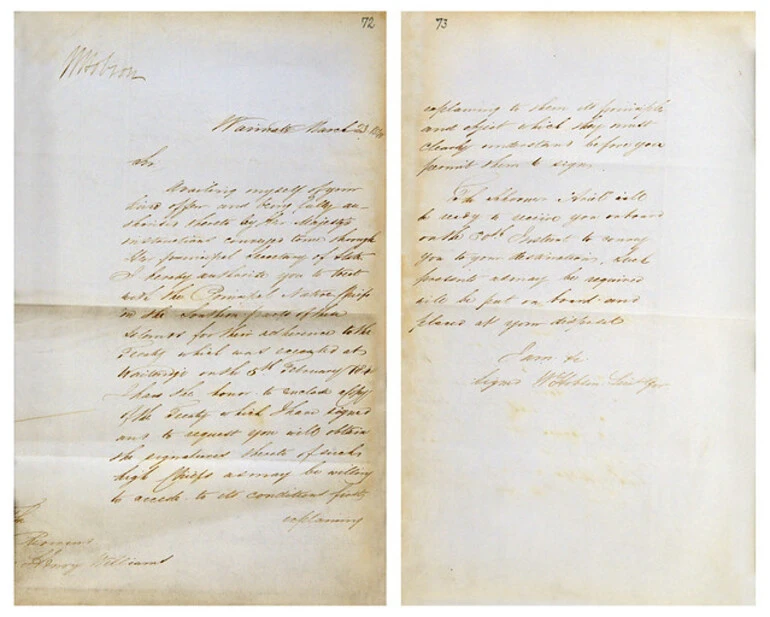 72
WHobson
Waimate March 23 1840
Sir
Availing myself of your
kind offer and being fully au-
thorized thereto by Her Majesty's
instructions conveyed to me through
the principal Secretary of State
I hereby authorize you to treat
with the Principal Native Chiefs
in the Southern parts of these
Islands for their adherence to the
Treaty which was executed at
Waitangi on the 6th February 1840
I have the honor to enclose a Copy
of the Treaty which I have signed
and to request you will obtain
the signatures thereto of such
high Chiefs as may be willing
to accede to its conditions first
explaining
The
Reverend
Henry Williams
73
explaining to them its principle
and object which they must
clearly understand before you
permit them to sign.
The Schooner Ariel will
be ready to receive you on board
on the 30th Instant to convey
you to your destination, Such
presents as may be required
will be put on board and
placed at your disposal
I am &c
Signed WHobson Lieut Gov